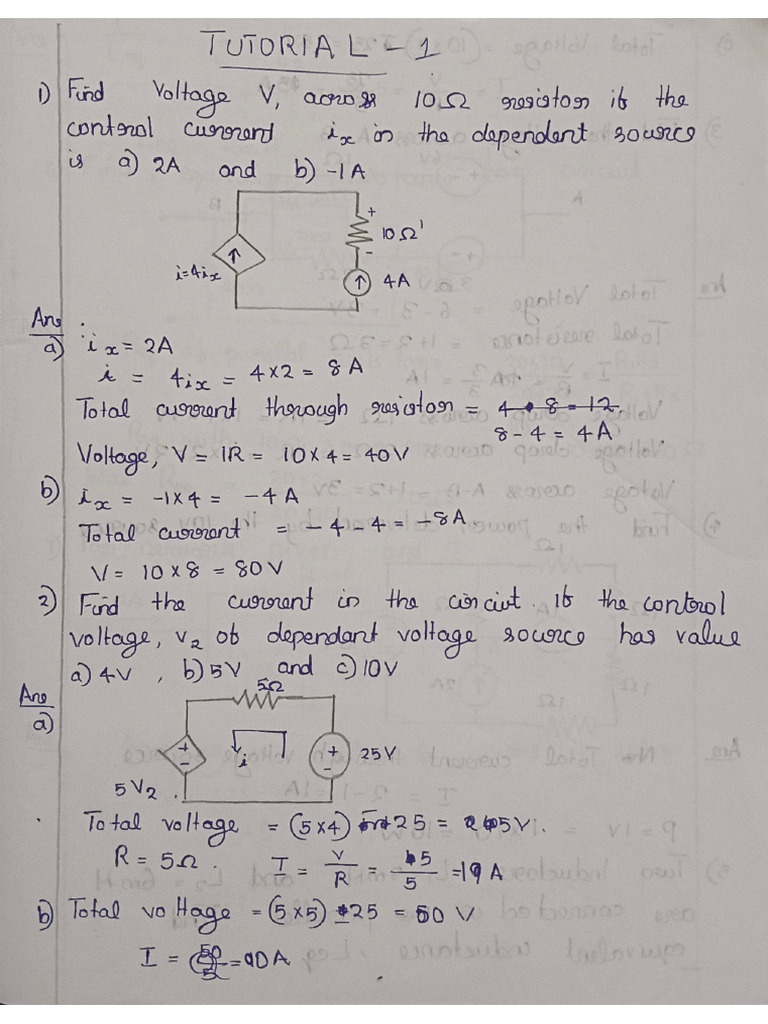 TUTORIAL - 1
1) Find Voltage V, across 10Ω resistor if the
control current ix in the dependent source
is a) 2A and b) -1A
+
10Ω
-
i=4ix
4A
Ans:
a) ix = 2A
i = 4ix = 4×2 = 8 A
Total current through resistor = 4 + 8 = 12
8 - 4 = 4A
Voltage, V = IR = 10 × 4 = 40V
b) ix = -1×4 = -4 A
Total current = -4 - 4 = -8A
V = 10 × 8 = 80V
2) Find the current in the circuit. If the control
voltage, V2 of dependant voltage source has value
a) 4V, b) 5V and c) 10V
Ans
a)
5Ω
+
-
i
+
-
25V
5V2
Total voltage = (5×4) 25 =
R = 5Ω. I = V/R =
b) Total voltage = (5×5) 25 =
I =